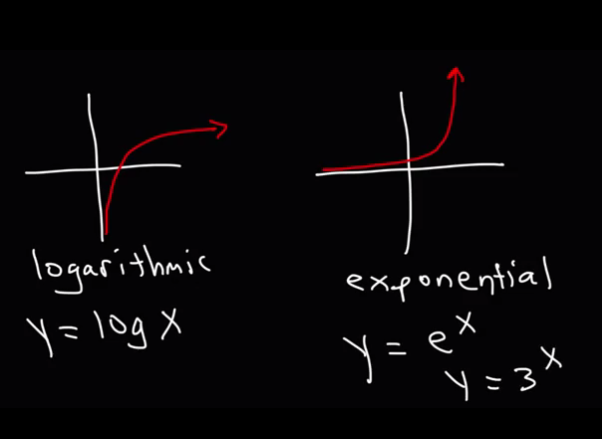 logarithmic
y = log x
exponential
y = eˣ
y = 3ˣ